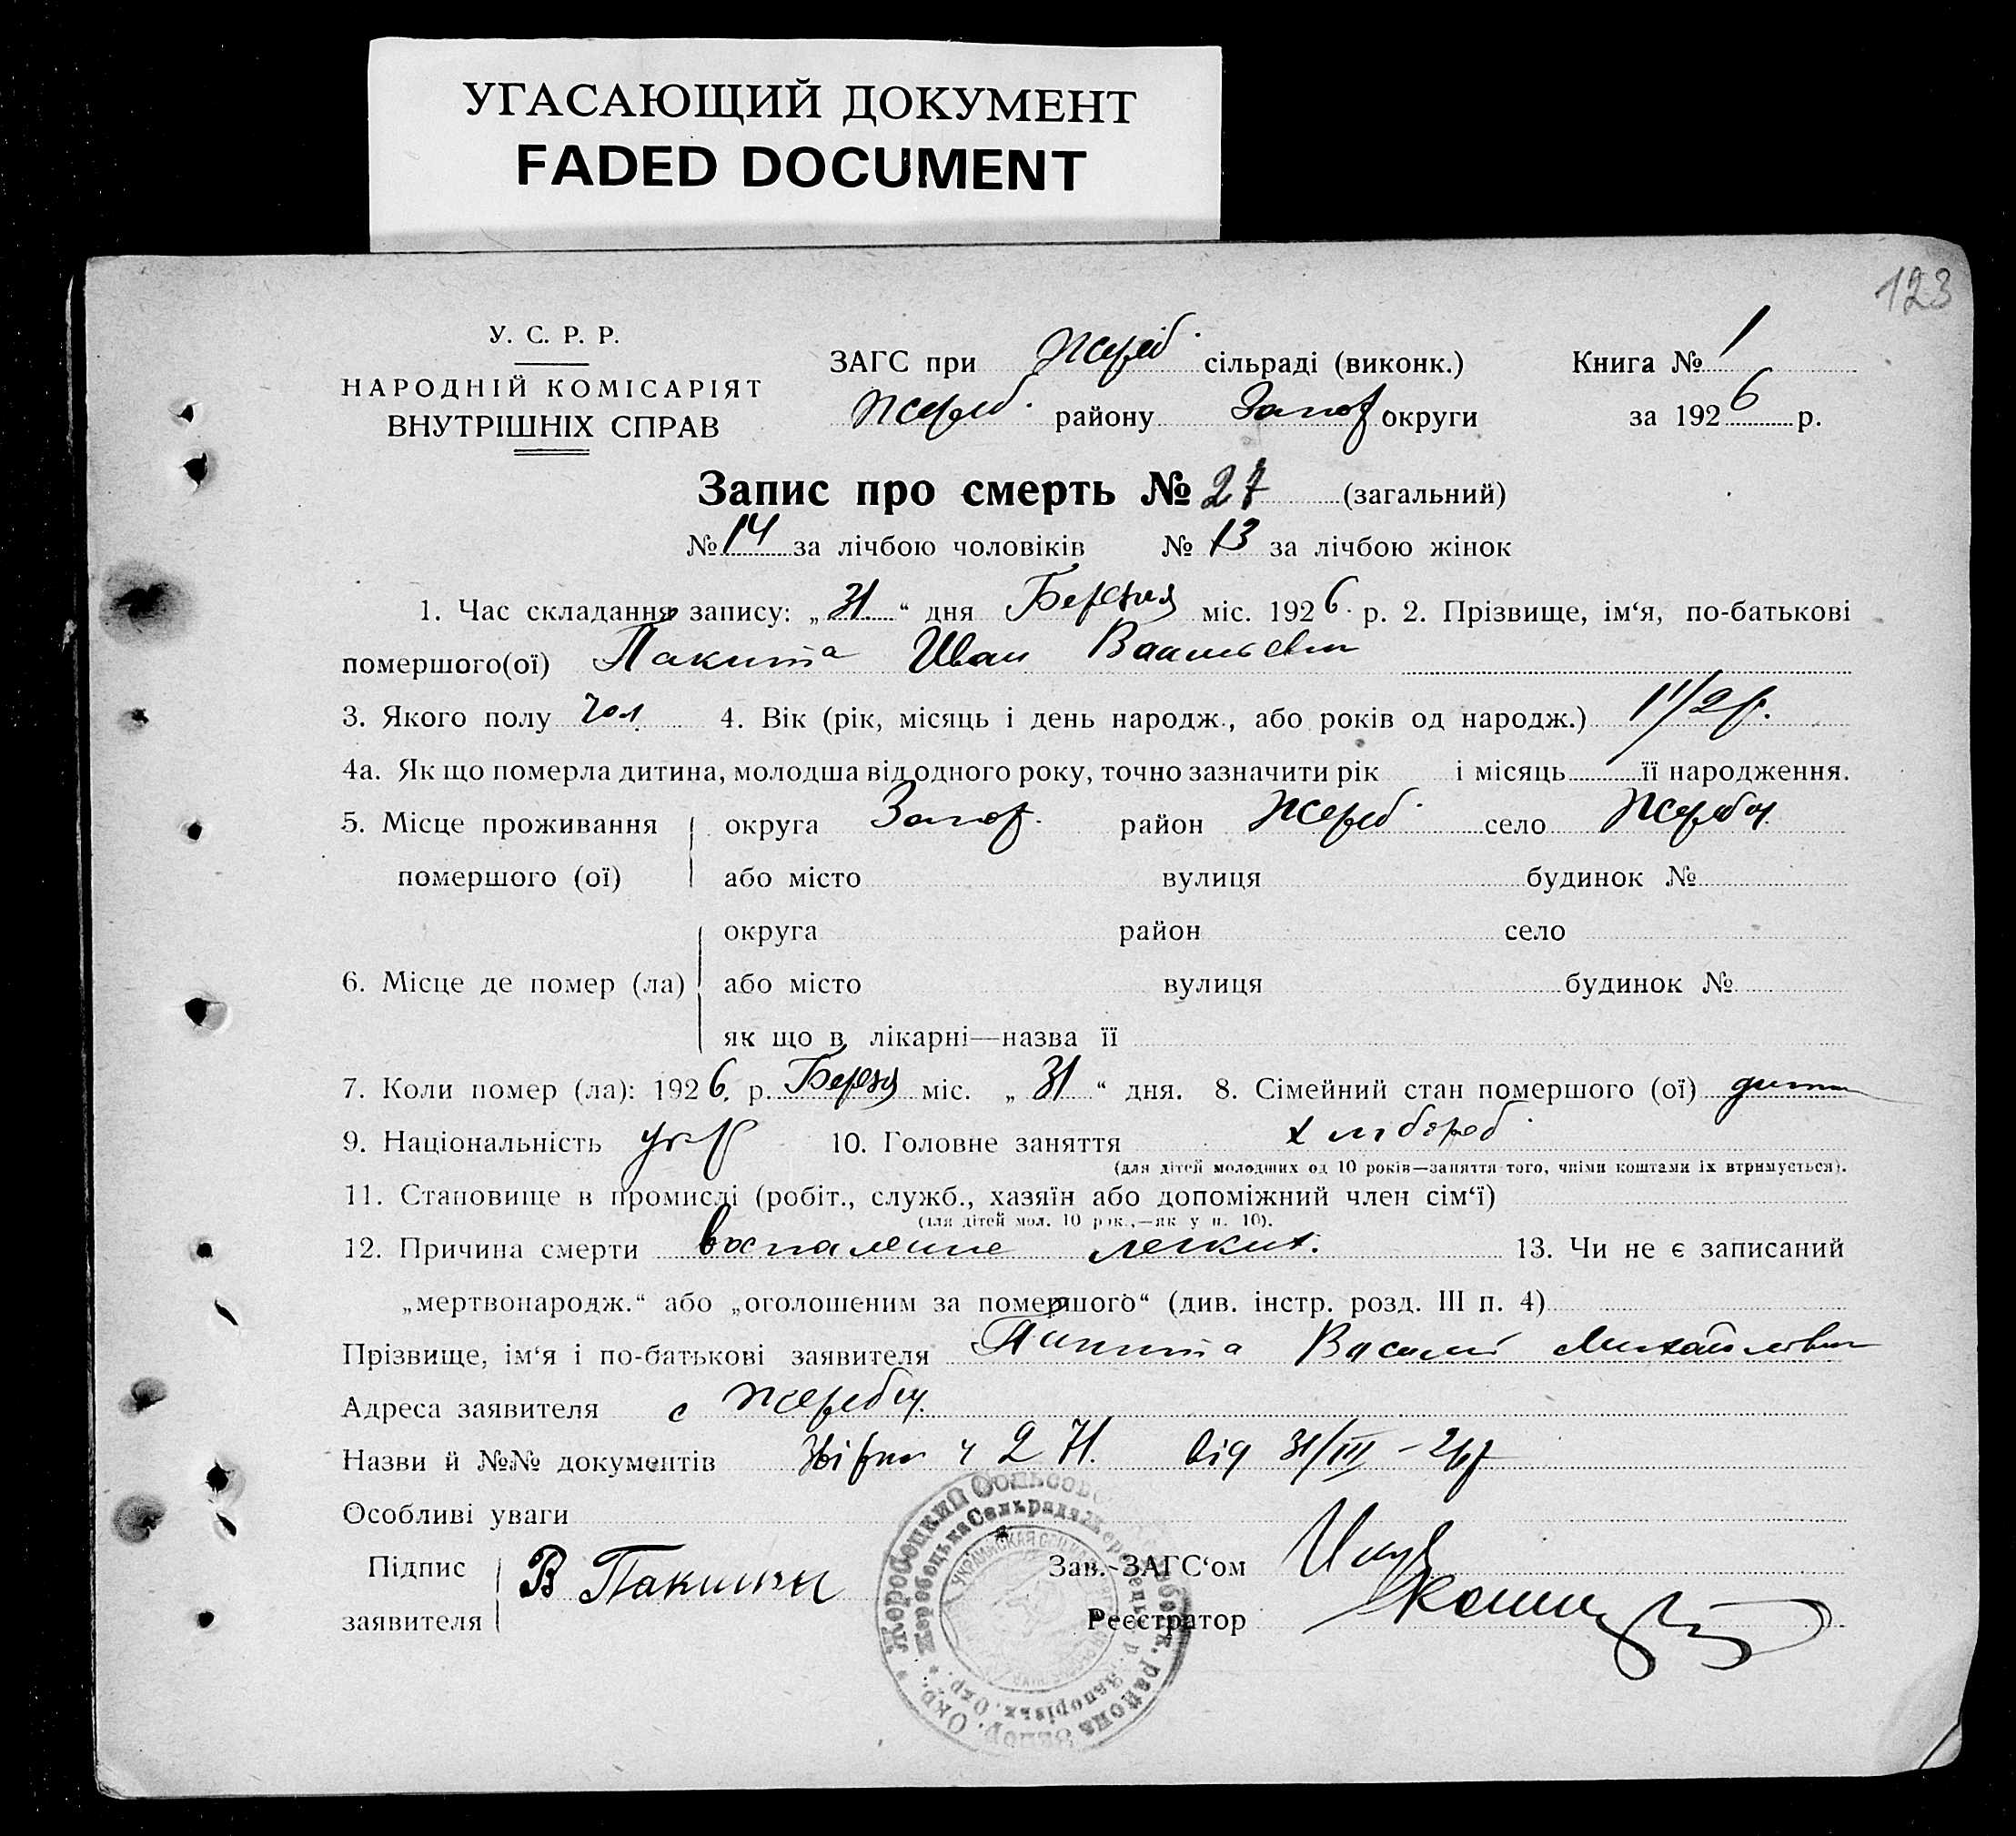 УГАСАЮЩИЙ ДОКУМЕНТ
FADED DOCUMENT
123
У. С. Р. Р.
НАРОДНІЙ КОМІСАРІЯТ
ВНУТРІШНІХ СПРАВ
ЗАГС при Жереб. сільраді (виконк.)
Жереб. району Запор округи
Книга № 1
за 1926 р.
Запис про смерть № 27 (загальний)
№ 14 за лічбою чоловіків № 13 за лічбою жінок
1. Час складання запису: „31“ дня Березня міс. 1926 р. 2. Прізвище, ім‘я, по-батькові
помершого(ої) Пакита Иван Васильевич
3. Якого полу чол 4. Вік (рік, місяць і день народж., або років од народж.) 1 1/2 р.
4а. Як що померла дитина, молодша від одного року, точно зазначити рік і місяць її народження.
5. Місце проживання помершого (ої) округа Запор. район Жереб село Жеребц
або місто вулиця будинок №
6. Місце де помер (ла) округа район село
або місто вулиця будинок №
як що в лікарні—назва її
7. Коли помер (ла): 1926 р. Березня міс. „31“ дня. 8. Сімейний стан помершого (ої) дитина
9. Національність укр 10. Головне заняття хлібороб
(для дітей молодших од 10 років—заняття того, чиїми коштами їх втримується).
11. Становище в промислі (робіт., служб., хазяїн або допоміжний член сім‘ї)
(для дітей мол. 10 рок.,—як у п. 10).
12. Причина смерти воспаление легких. 13. Чи не є записаний
„мертвонародж.“ або „оголошеним за помершого“ (див. інстр. розд. III п. 4)
Прізвище, ім‘я і по-батькові заявителя Пакита Василий Михайлович
Адреса заявителя с Жеребц.
Назви й №№ документів ч 271. від 31/III – 26 р
Особливі уваги
Підпис заявителя В Пакита
Зав.-ЗАГС‘ом
Реєстратор